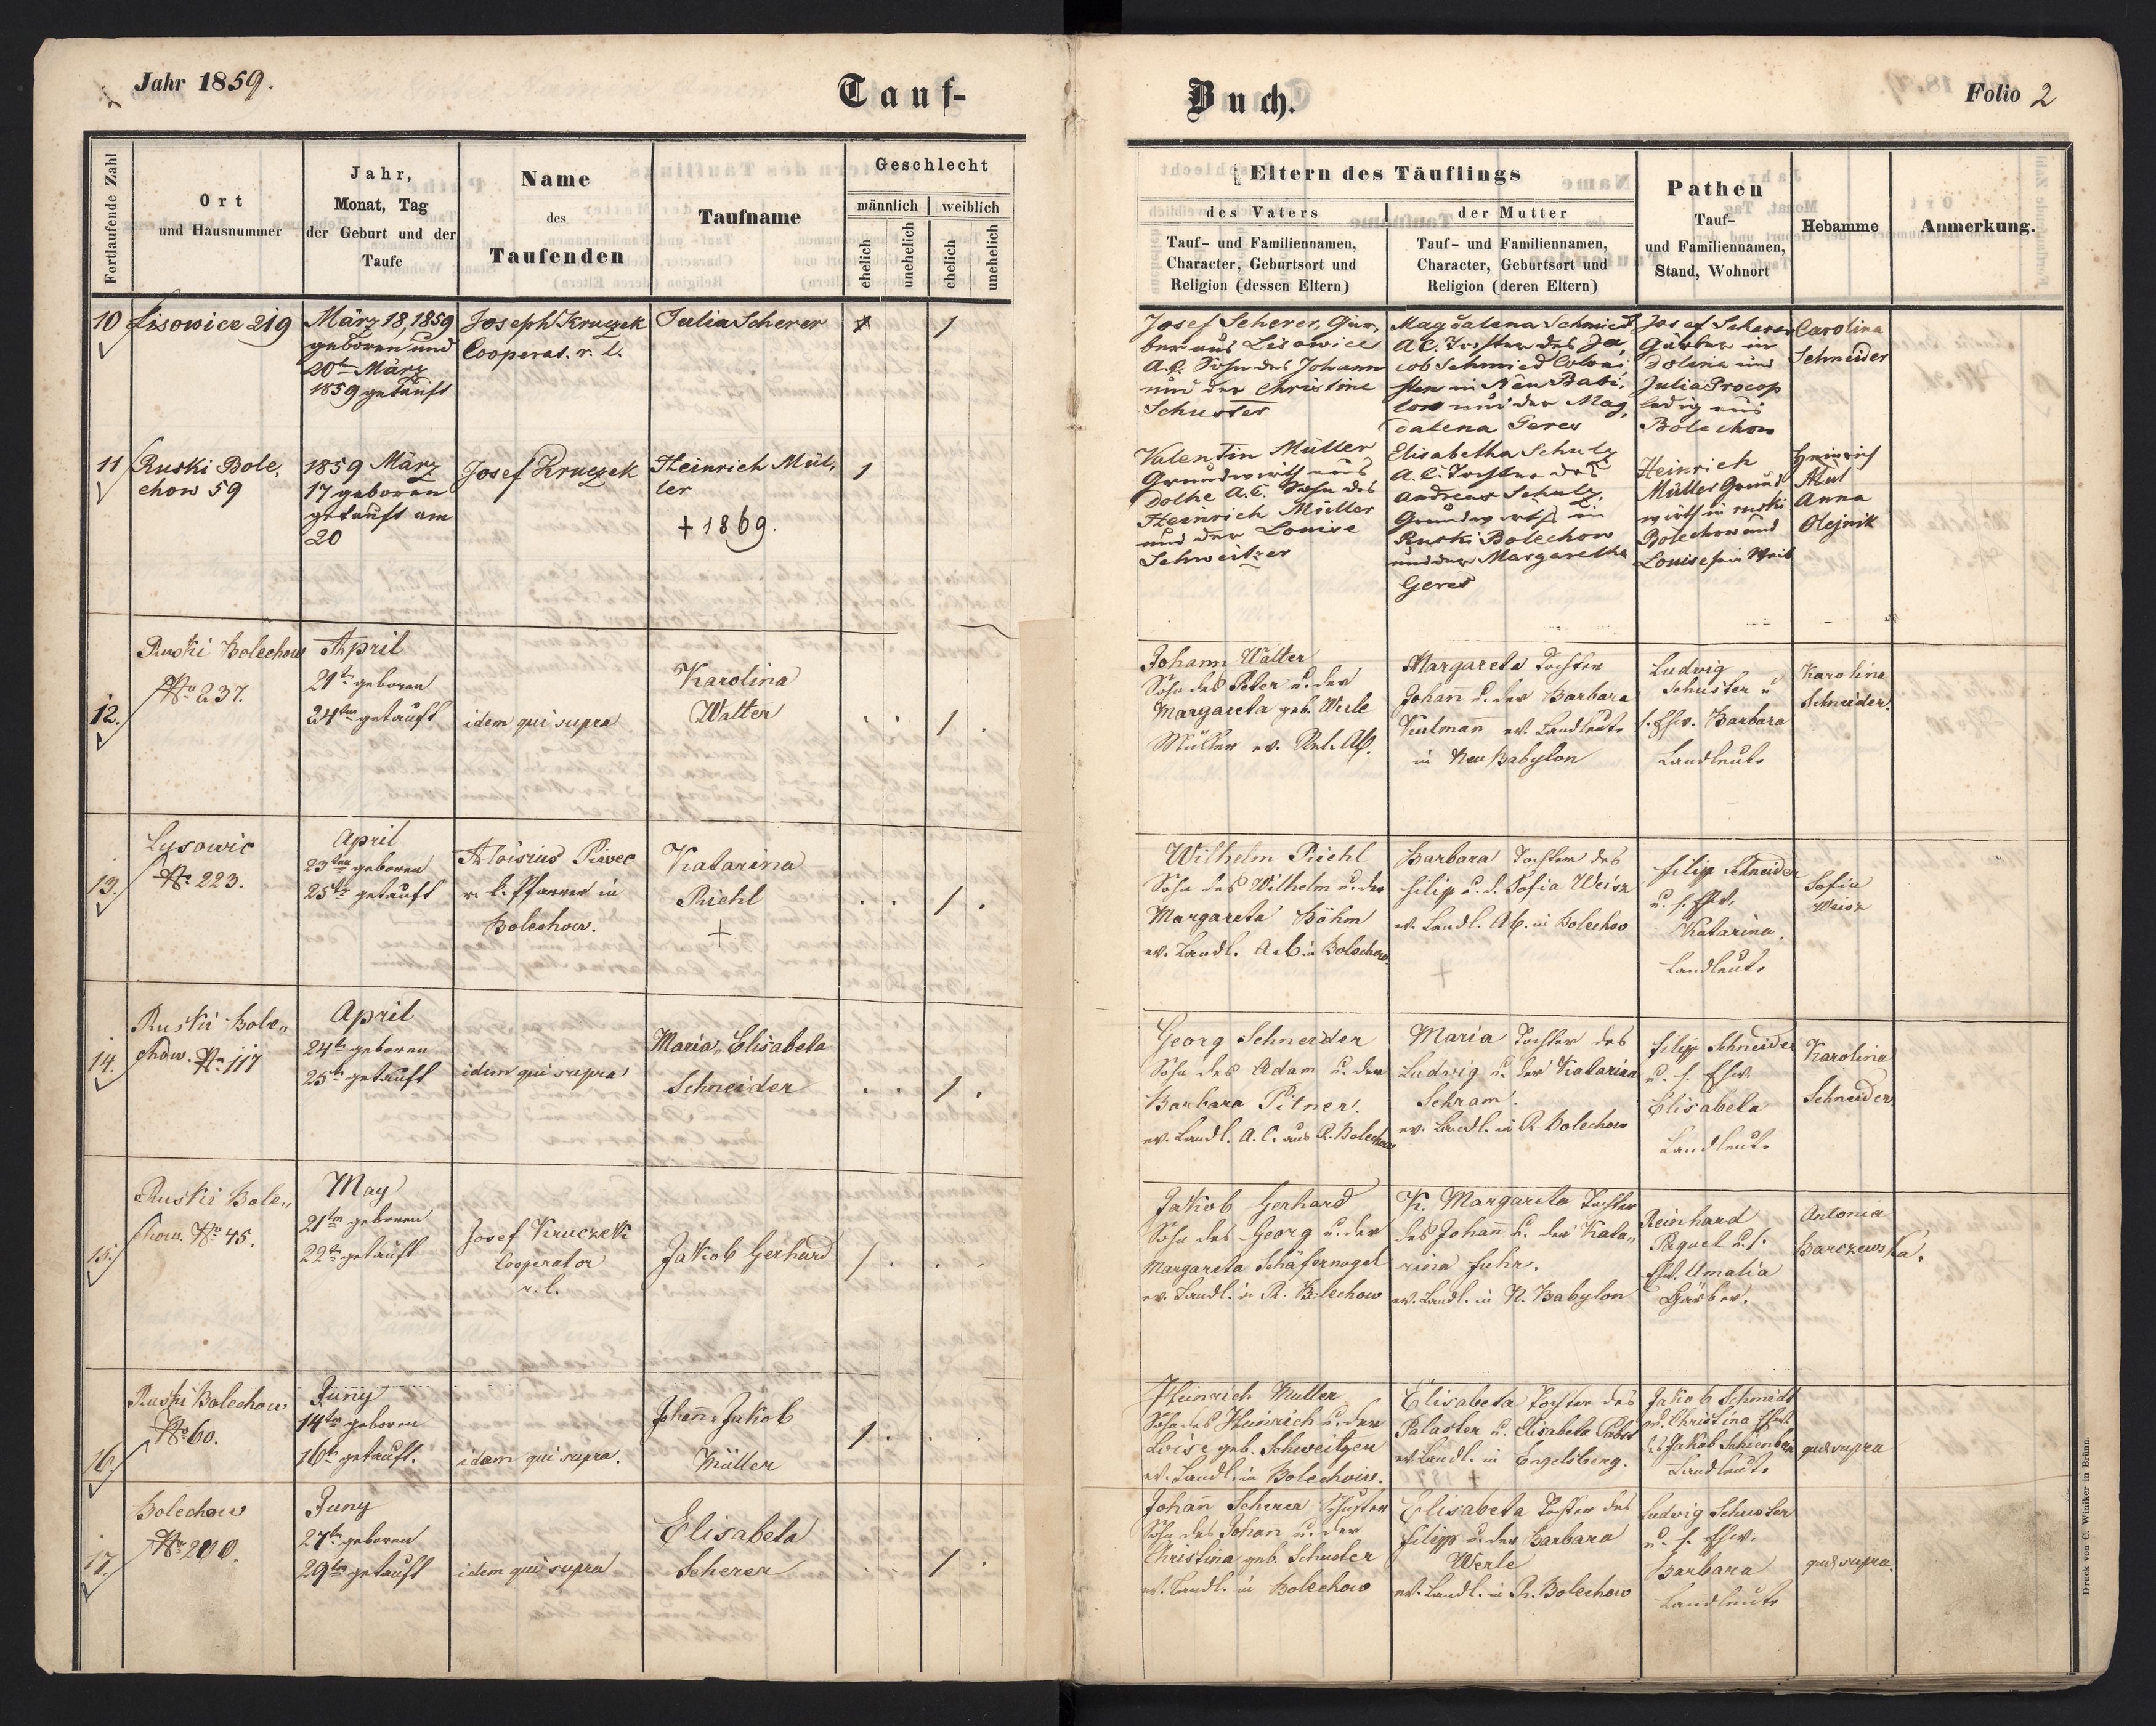 Jahr 1859.
Tauf-
Fortlaufende Zahl
Ort
und Hausnummer
Jahr,
Monat, Tag
der Geburt und der
Taufe
Name
des
Taufenden
Taufname
Geschlecht
männlich
weiblich
ehelich
unehelich
ehelich
unehelich
10
Lisowice 219
März 18, 1859
geboren und
20ten März
1859 getauft
Joseph Kruczek
Cooperat. r. l.
Julia Scherer
1
11
Ruski Bole,
chow 59
1859 März
17 geboren
getauft am
20
Josef Kruczek
Heinrich Mül,
ler
+ 1869.
1
12.
Ruski Bolechow
No 237.
April
21tn geboren
24ten getauft
idem qui supra
Karolina
Walter
1
13.
Lysowic
No. 223.
April
23ten geboren
25tn getauft
Aloisius Piwec
r. l. Pfarrer in
Bolechow.
Katarina
Riehl
+
1
14.
Ruski Bole„
chow. No 117
April
24tn geboren
25tn getauft
idem qui supra
Maria, Elisabeta
Schneider
1
15.
Ruski Bole„
chow. No 45.
May
21tn geboren
22tn getauft
Josef Kruczek
Cooperator
r. l.
Jakob Gerhard
1
16.
Ruski Bolechow
No 60.
Juny
14ten geboren
16tn getauft.
idem qui supra.
Johann, Jakob
Müller
1
17.
Bolechow
No 200.
Juny
27tn geboren
29ten getauft
idem qui supra
Elisabeta
Scherer
1
Buch.
Folio 2
Eltern des Täuflings
des Vaters
der Mutter
Tauf- und Familiennamen,
Character, Geburtsort und
Religion (dessen Eltern)
Tauf- und Familiennamen,
Character, Geburtsort und
Religion (deren Eltern)
Pathen
Tauf-
und Familiennamen,
Stand, Wohnort
Hebamme
Anmerkung.
Josef Scherer, Gär,
ber aus Lisowice
A.C. Sohn des Johann
und der Christine
Schuster
Magdalena Schmied,
A.C. Tochter des Ja,
cob Schmied Coloni,
sten in Neu Babi,
lon und der Mag,
dalena Geres
Josef Scherer
Gärber in
Dolina und
Julia Procop
ledig aus
Bolechow
Carolina
Schneider
Valentin Müller
Grundwirth aus
Dolhe A.C. Sohn des
Heinrich Mieller
und der Louise
Schweitzer
Elisabetha Schulz
A.C. Tochter des
Andreas Schulz,
Grundwirths in
Ruski Bolechow
und der Margaretha
Geres
Heinrich
Müller Grund
wirth in ruski
Bolechow und
Louise sein Weib
Anna
Olejnik
Johann Walter
Sohn des Peter u. der
Margareta geb. Werle
Müller ev. Rel. AC.
Margareta Tochter
Johann u. der Barbara
Kulmann ev. Landleute
in Neu Babylon
Ludwig
Schuster u
s. Ehw. Barbara
Landleute
Karolina
Schneider.
Wilhelm Riehl
Sohn des Wilhelm u. der
Margareta Böhm
ev. Landl. A.C. in Bolechow.
Barbara Tochter des
Filip u. d. Sofia Weisz
ev. Landl. AC. in Bolechow
+
Filip Schneider
u. s. Ehw.
Katarina.
Landleute
Sofia
Weisz
Georg Schneider
Sohn des Adam u. der
Barbara Pitner.
ev. Landl. A.C. aus R. Bolechow
Maria Tochter des
Ludwig u. der Katarina
Schram.
ev. Landl. in R. Bolechow
Filip Schneider
u. s. Ehw.
Elisabeta
Landleute
Karolina
Schneider
Jakob Gerhard
Sohn des Georg u. der
Margareta Schäfernagel
ev. Landl. in R. Bolechow
K. Margareta Tochter
des Johann u. der Kata„
rina Fuhr.
ev. Landl. in N. Babylon
Reinhard
u. s.
Ehw. Amalia
Gärber.
Antonia
Barczewska.
Heinrich Muller
Sohn des Heinrich u. der
Loise geb. Schweitzer
ev. Landl. in Bolechow.
Elisabeta Tochter des
u. Elisabeta Pabst
ev. Landl. in Engelsberg.
Jakob Schmidt
u. Christina Ehw.
des Jakob Schienbein
Landleute
quae supra
Johann Scherer Schuster
Sohn des Johann u. der
Christina geb. Schuster
ev. Landl. in Bolechow
Elisabeta Tochter des
Filipp u. der Barbara
Werle
ev. Landl. in R. Bolechow
Ludwig Schuster
u. s. Ehw.
Barbara
Landleute
quae supra.
Druck von C. Winiker in Brünn.